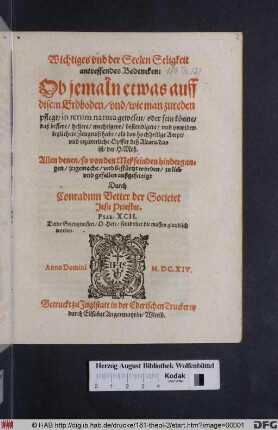 Wichtiges vnd der Seelen Seligkeit
antreffendes Bedencken:
Ob jemaln etwas auff
disem Erdboden / vnd / wie man zureden
pflegt / in rerum natura gewesen / oder sein könne /
daß bessere / hellere / wichtigere / beständigere / vnd
Zeugnuß habe / als das hochheilige Ampt /
vnd Opffer deß Altars / das
ist / der H. Meß.
Allen denen / so von den Meßfeinden hindergan-
gen / jrrgemacht / vnd bestürtzt worden / zu lieb
vnd gefallen außgefertigt
Durch
Conradum Vetter der Societet
Jesu Priester.
PSAL. XCII.
Deine Gezeugnussen / O Herr / seind vber die massen glaublich
worden.
Anno Domini
M. DC. XIV.
Getruckt zu Ingolstatt in der Ederischen Truckerey
durch Elisabeth Angermayrin / Wittib.
Herzog August Bibliothek Wolfenbüttel
Kodak
http://diglib.hab.de/drucke/181-theol-2/start.htm?image=00001
DFG